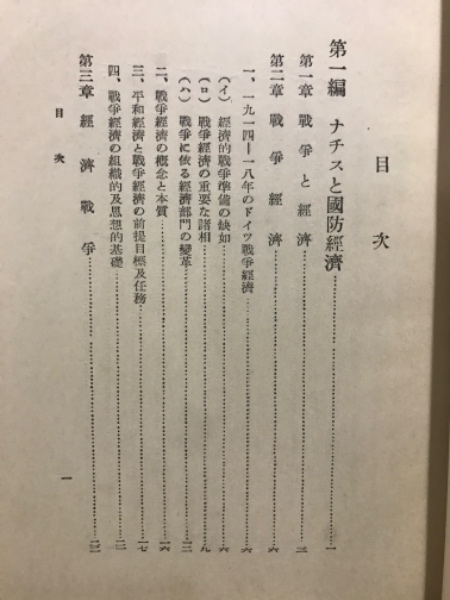 目次
第一編 ナチスと國防經濟……一
第一章 戰爭と經濟……二
第二章 戰爭經濟……六
一、一九一四―一八年のドイツ戰爭經濟……六
(イ) 經濟的戰爭準備の缺如……六
(ロ) 戰爭經濟の重要な諸相……九
(ハ) 戰爭に依る經濟部門の變革……一三
二、戰爭經濟の概念と本質……一六
三、平和經濟と戰爭經濟の前提目標及任務……一七
四、戰爭經濟の組織的及思想的基礎……
第三章 經濟戰爭……
目次
一